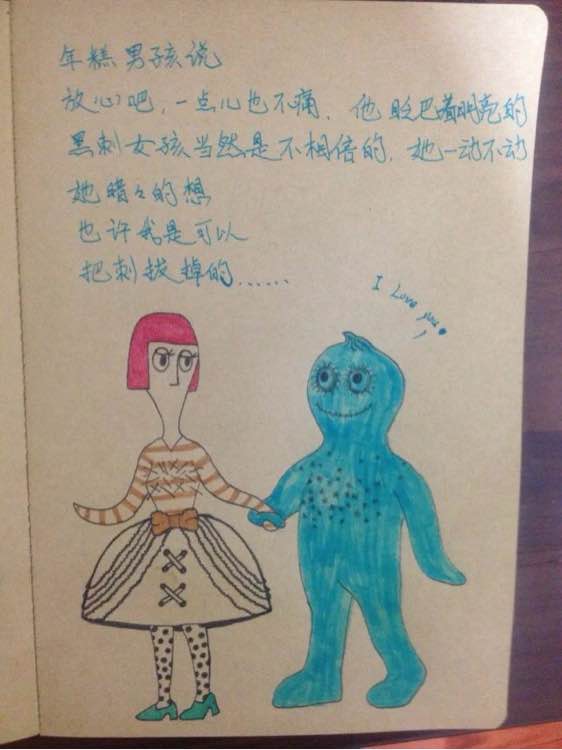 年糕男孩说
放心吧,一点儿也不痛,他眨巴着明亮的
黑刺女孩当然是不相信的,她一动不动
她暗々的想
也许我是可以
把刺拔掉的......
I Love you